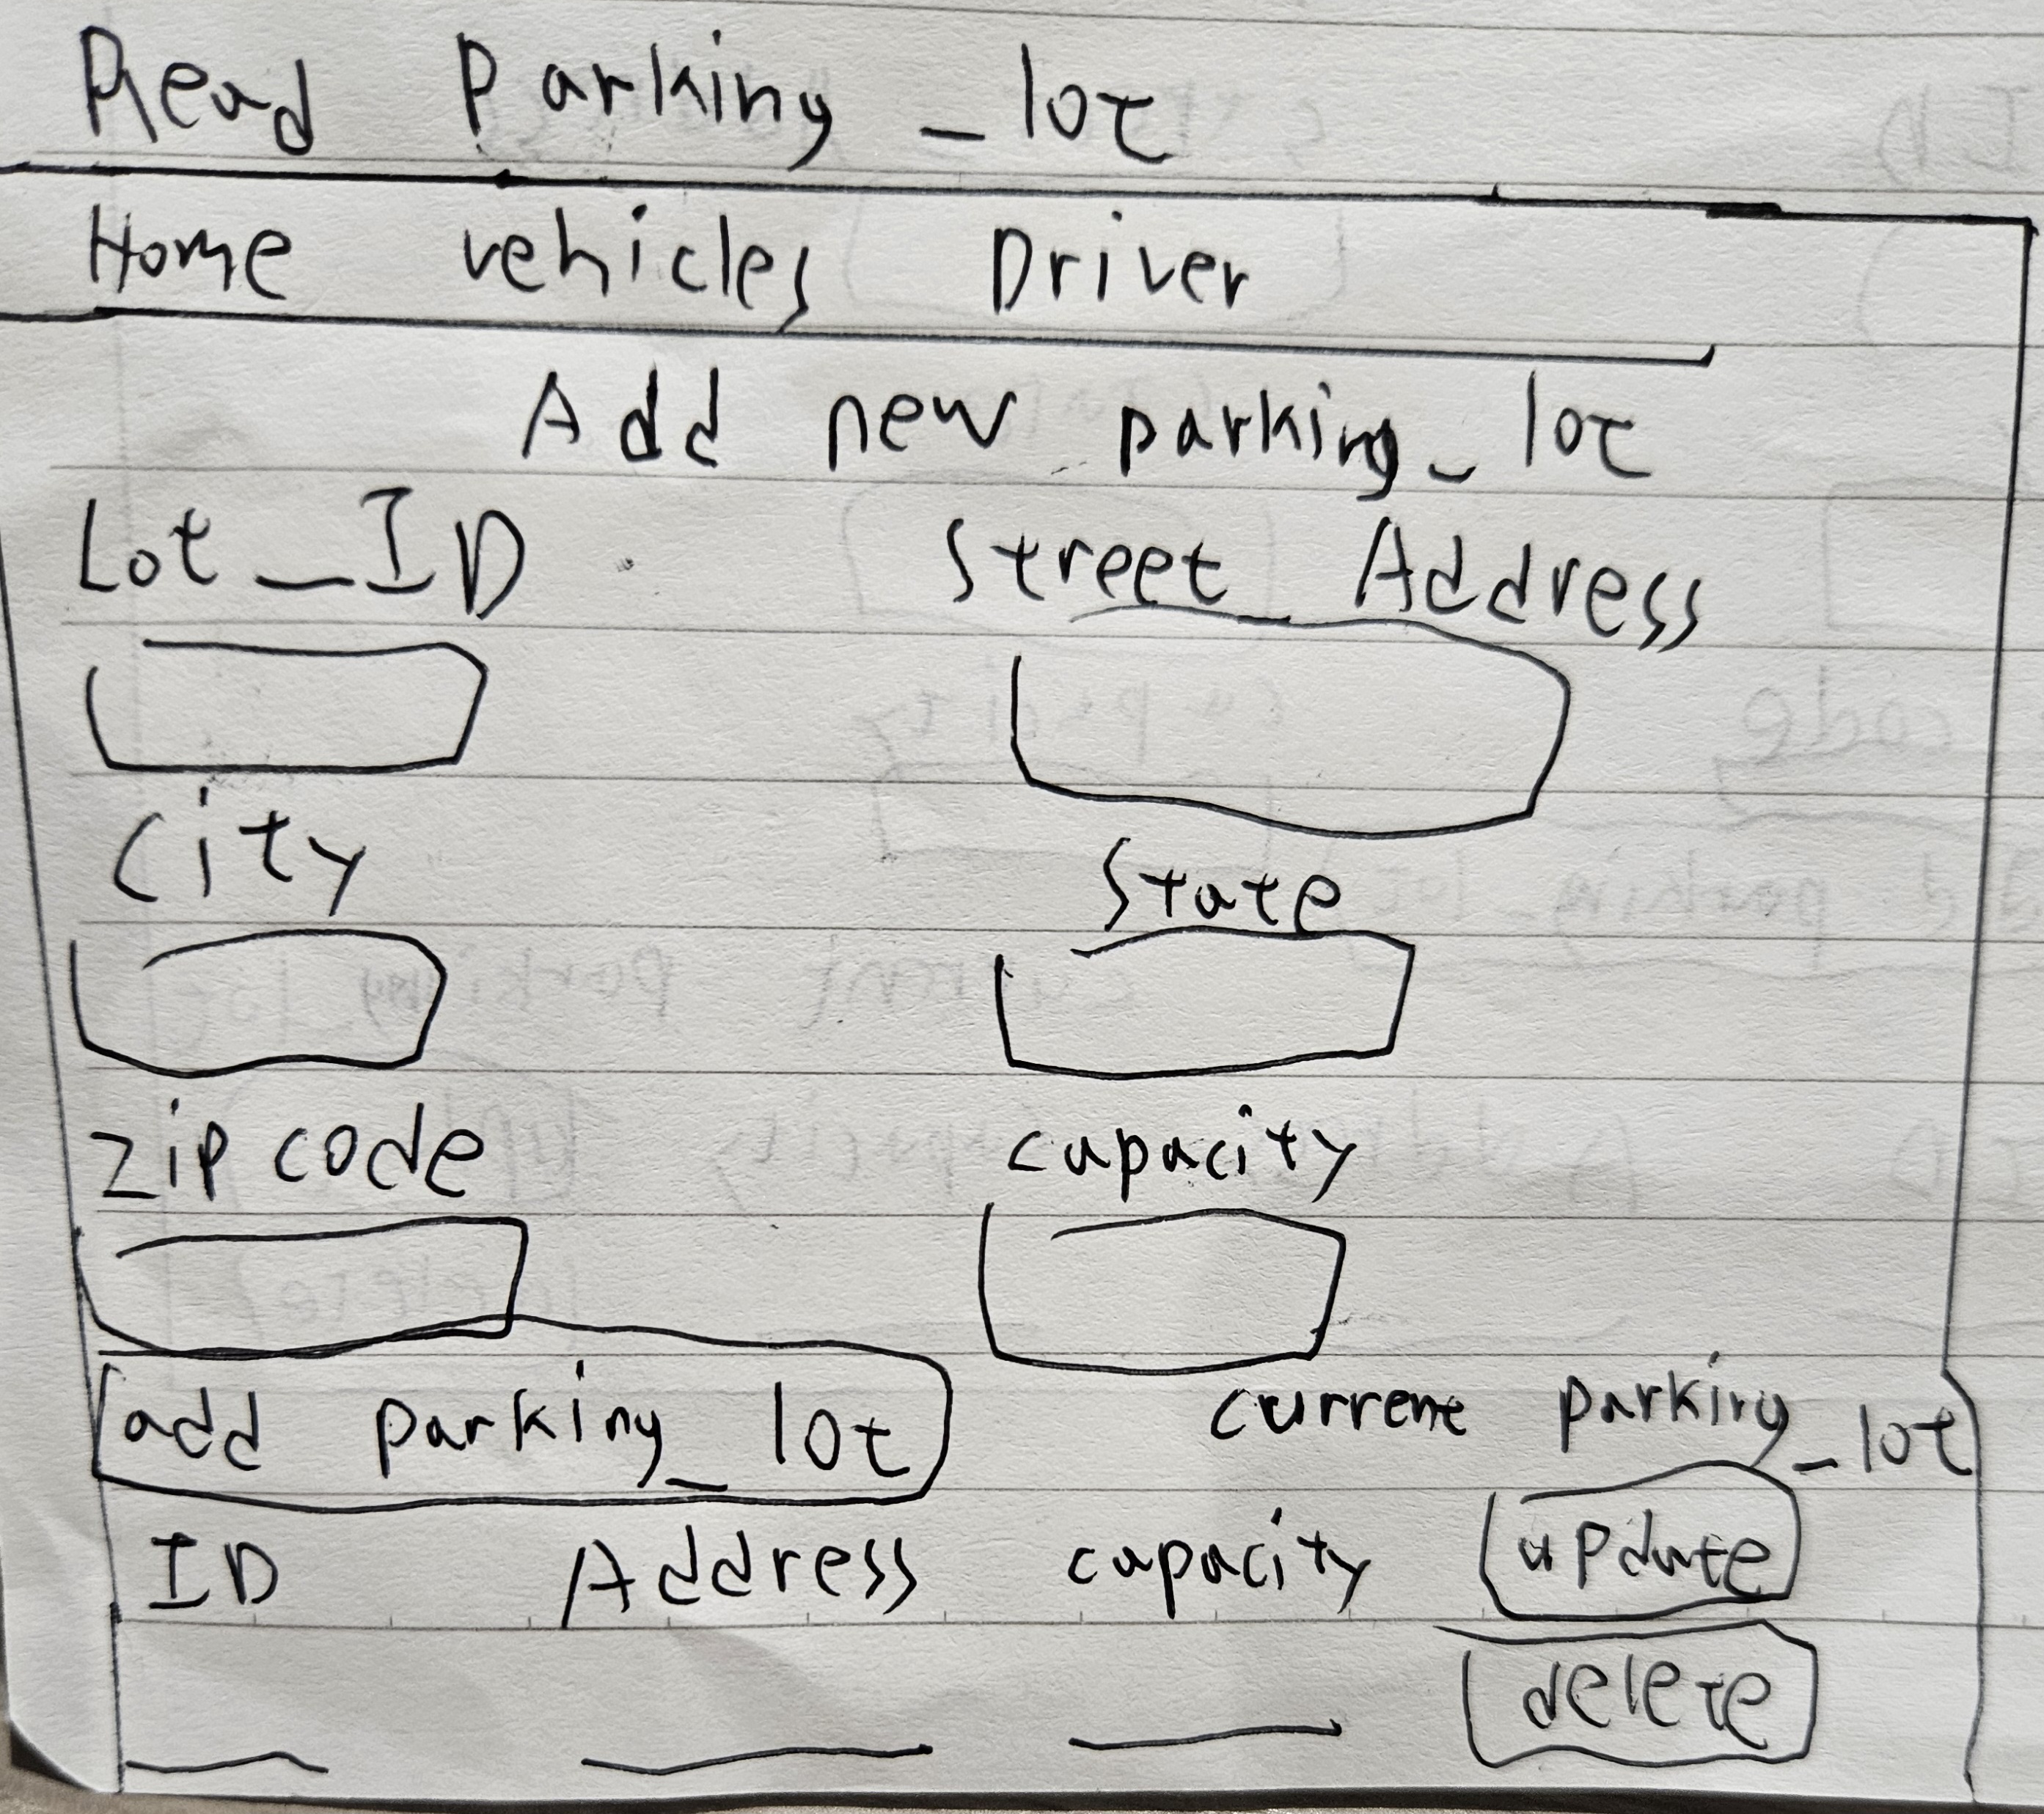 Read Parking_lot
Home vehicles Driver
Add new parking_lot
Lot_ID Street Address
City State
Zip code capacity
add parking_lot current parking_lot
ID Address capacity update
delete